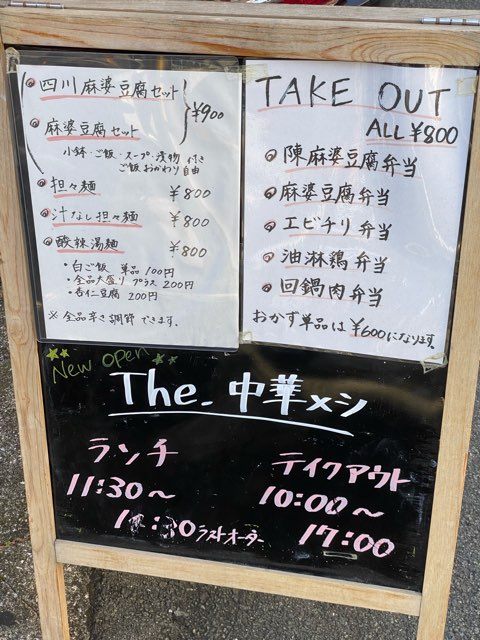 四川麻婆豆腐セット
麻婆豆腐セット
¥900
小鉢・ご飯・スープ・漬物 付き
ご飯おかわり自由
担々麺 ¥800
汁なし担々麺 ¥800
酸辣湯麺 ¥800
・白ご飯 単品 100円
・全品大盛り プラス 200円
・杏仁豆腐 200円
※ 全品辛さ調節できます。
TAKE OUT
ALL ¥800
陳麻婆豆腐弁当
麻婆豆腐弁当
エビチリ弁当
油淋鶏弁当
回鍋肉弁当
おかず単品は¥600になります。
New OPEN
The. 中華メシ
ランチ
11:30〜
:30 ラストオーダー
テイクアウト
10:00〜
17:00